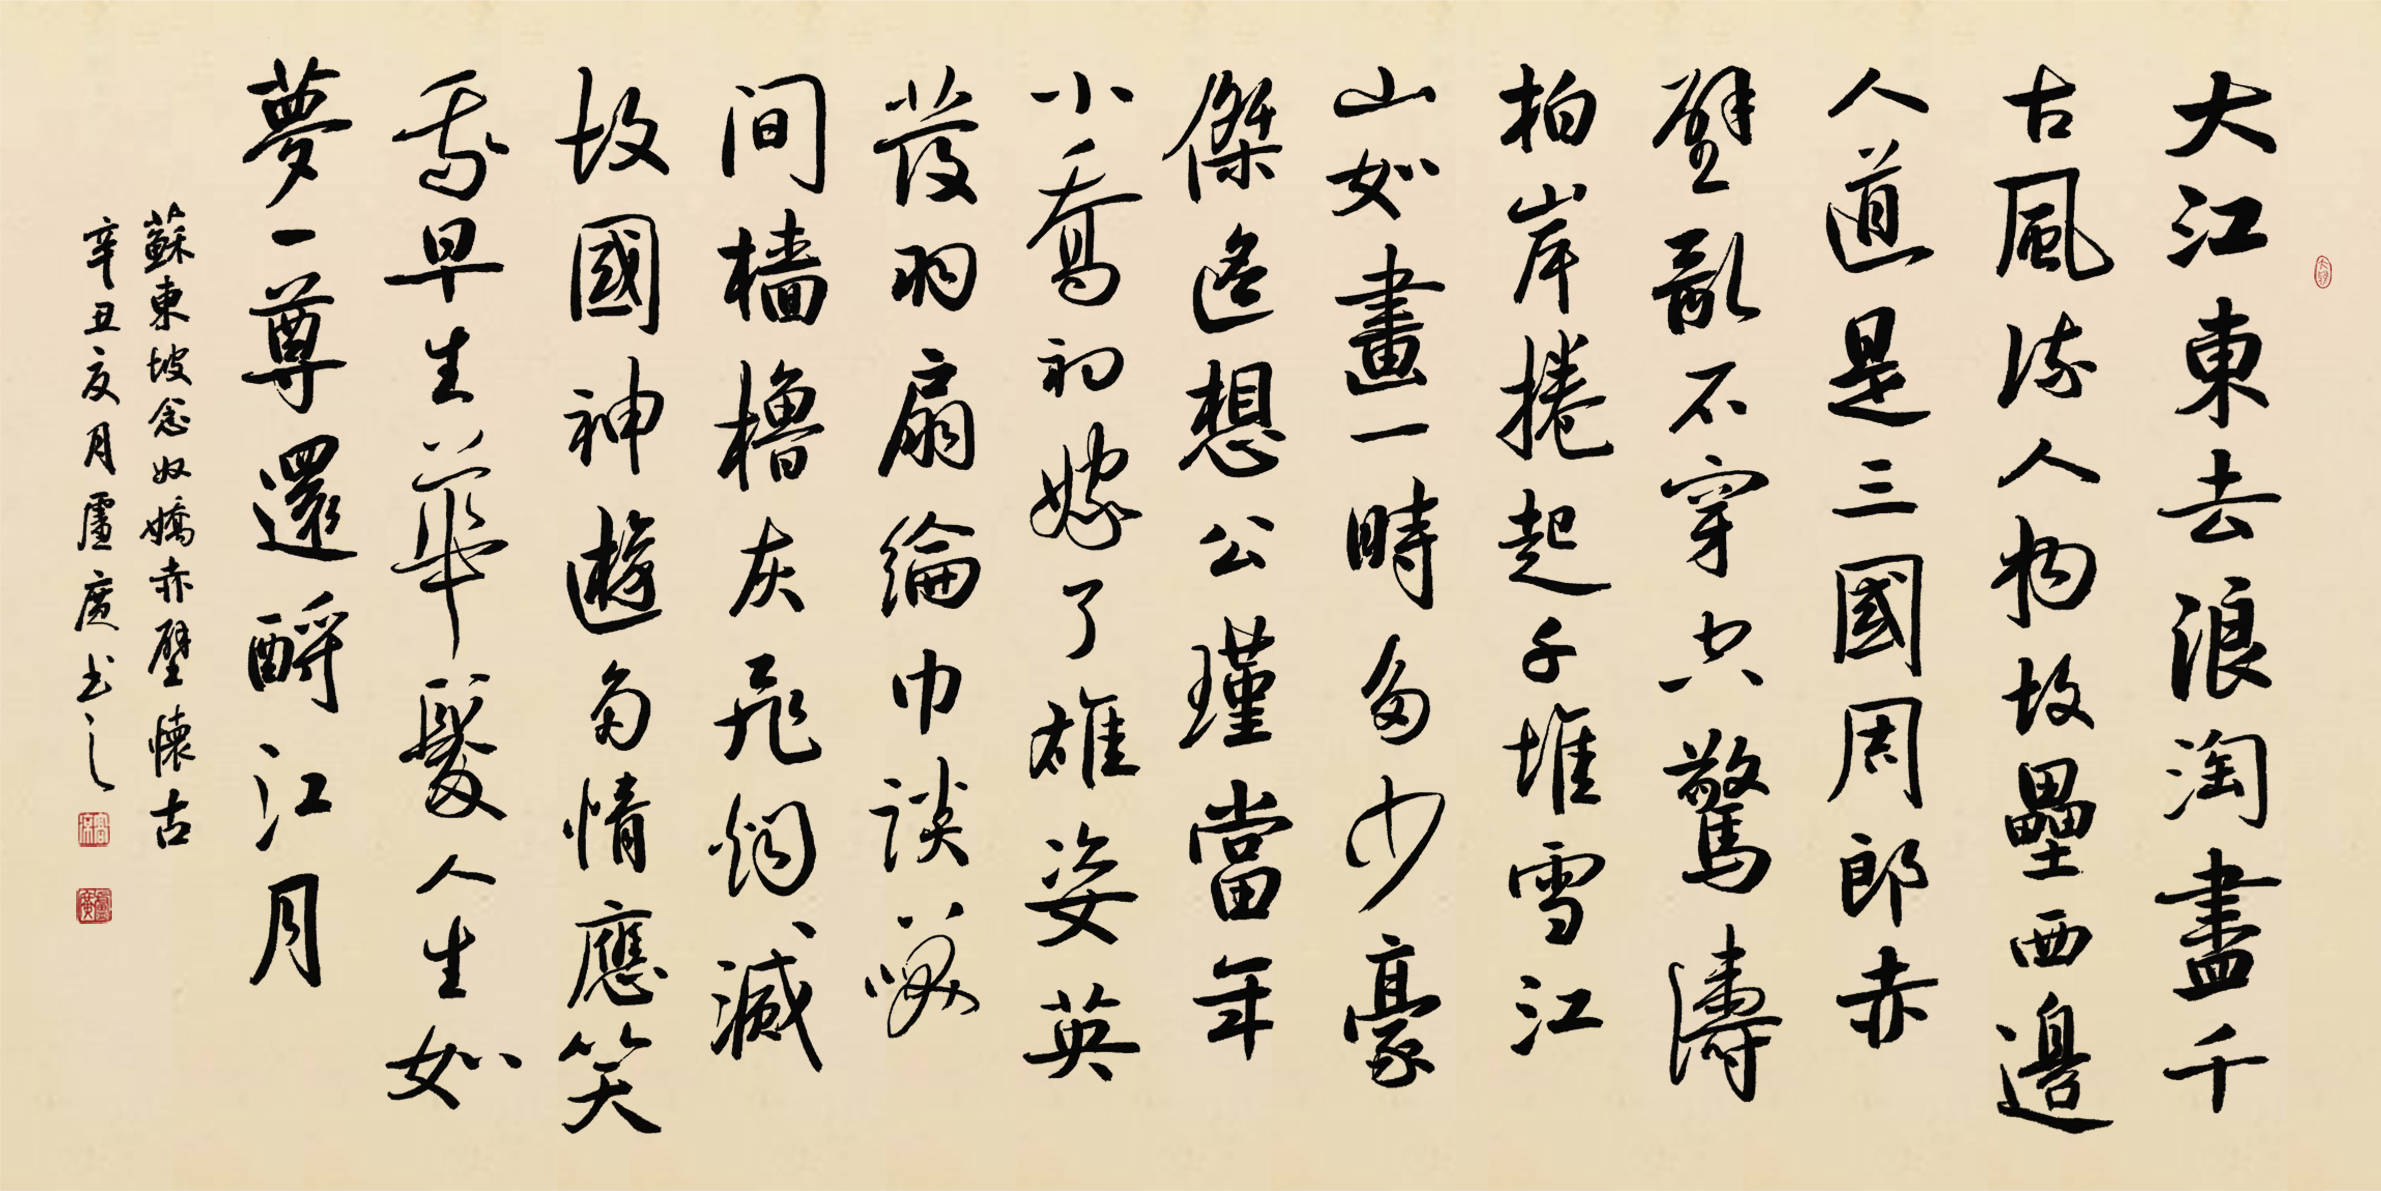 大江東去浪淘盡千
古風流人物故壘西邊
人道是三國周郎赤
壁亂石穿空驚濤
拍岸捲起千堆雪江
山如畫一時多少豪
傑遙想公瑾當年
小喬初嫁了雄姿英
發羽扇綸巾談笑
间檣櫓灰飛烟滅
故國神遊多情應笑
我早生華髮人生如
夢一尊還酹江月
蘇東坡念奴嬌赤壁懷古
辛丑夏月盧廣书之
盧廣